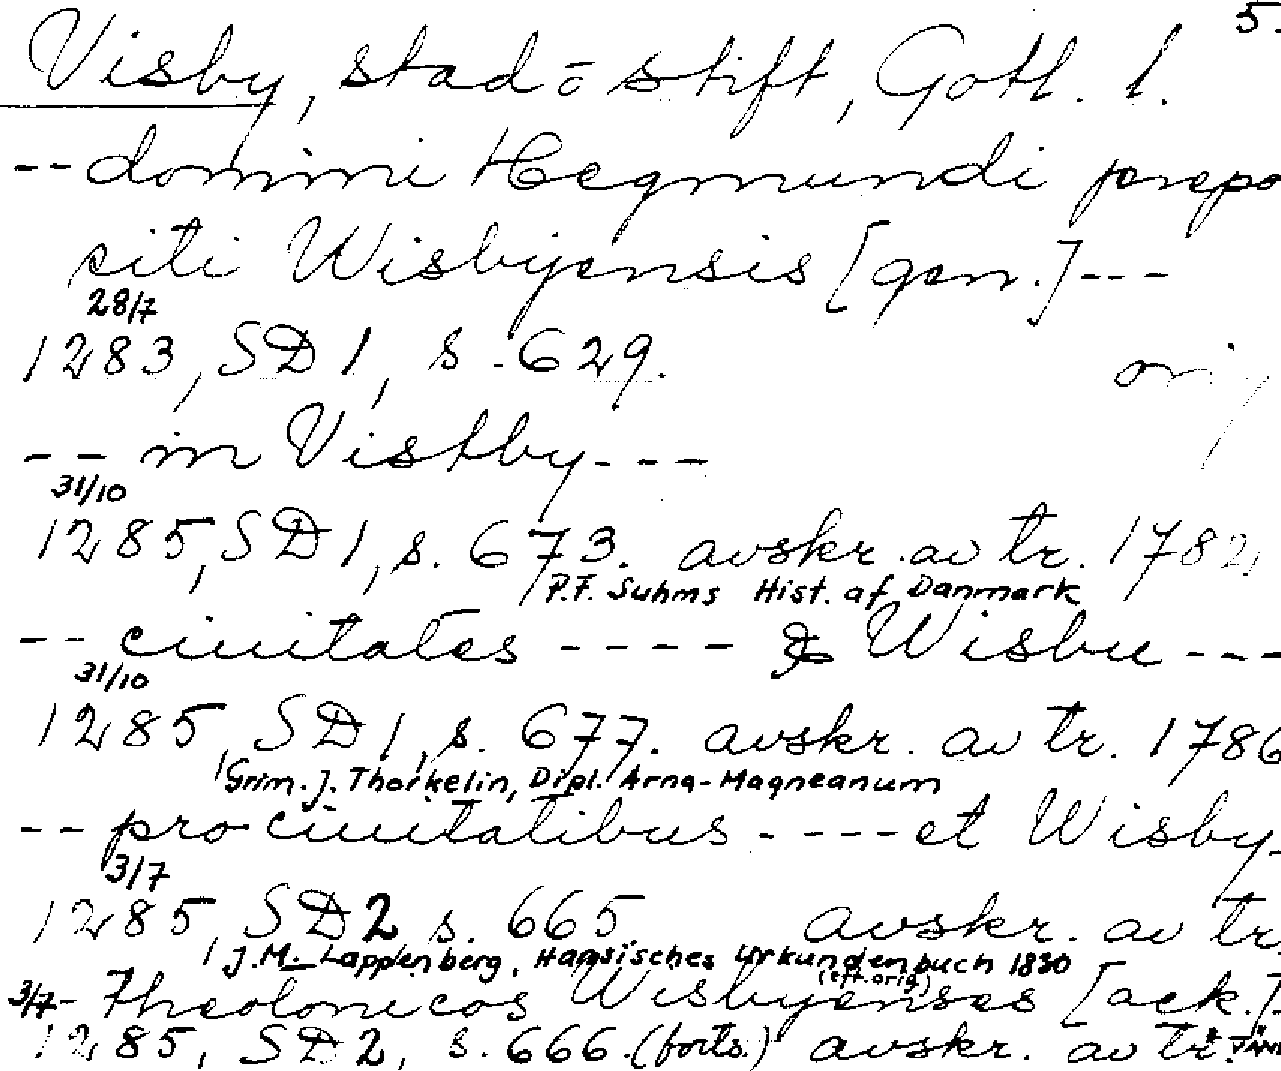 5.
Visby, stad o stift, Gotl. l.
-- domini Hegmundi prepo
siti Wisbyensis [gen.] ---
28/7
1283, SD 1, s. 629. orig
-- in Vistby ---
31/10
1285, SD 1, s. 673. avskr. av tr. 1782,
P.F. Suhms Hist. af Danmark
-- ciuitates ---- & Wisbu ---
31/10
1285, SD 1, s. 677. avskr. av tr. 1786
Grim. J. Thorkelin, Dipl. Arna-Magneanum
-- pro ciuitatibus ---- et Wisby-
3/7
1285, SD 2 s. 665 avskr. av tr.
J.M. Lappenberg, Hansisches Urkundenbuch 1830
(eft. orig.)
3/7 - Theolonicos Wisbyenses [ack.]-
1285, SD 2, s. 666. (forts.) avskr. av tr.